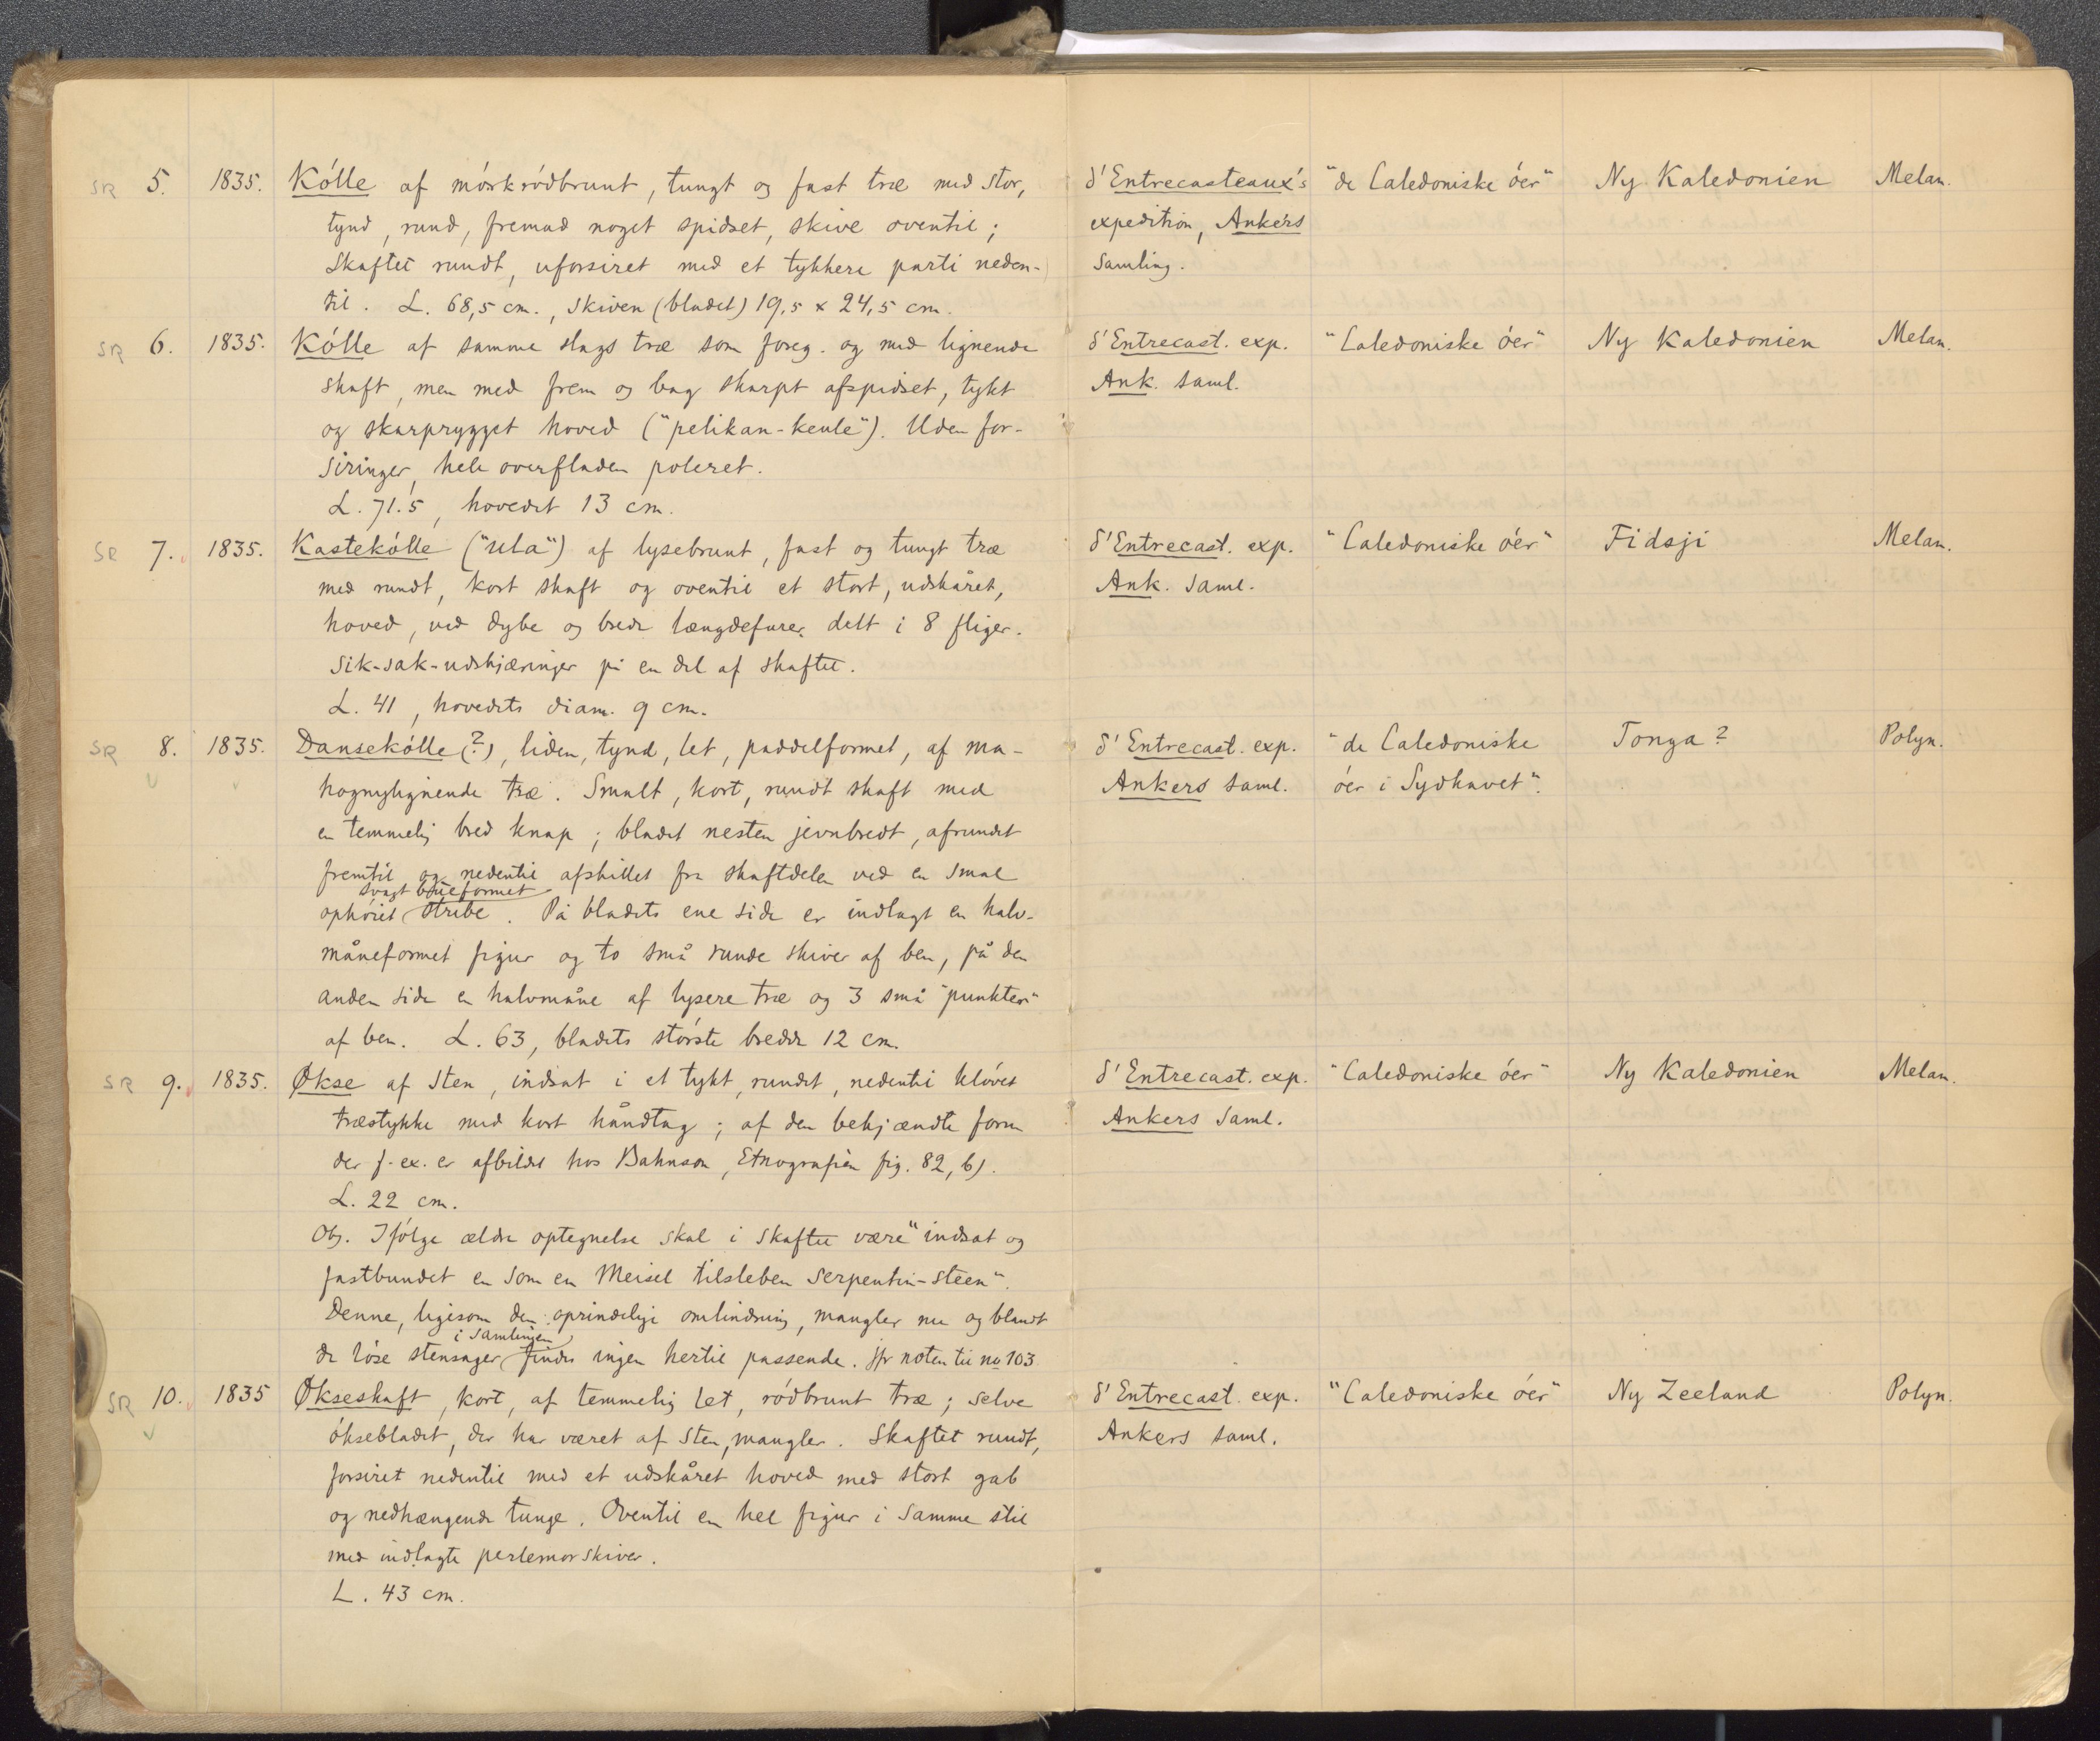 SR 5. 1835. Kólle af mórkródbrunt, tungt og fast træ med stor, d'Entrecasteaux's "de Caledoniske óer" Ny Kaledonien Melan.
tynd, rund, fremad noget spidset, skive oventil; expedition, Ankers
Skaftet rundt, uforsiret med et tykkere parti neden- Samling.
til. L. 68,5 cm., Skiven (bladet) 19,5 x 24,5 cm.
SR 6. 1835. Kólle af samme slags træ som foreg. og med lignende d'Entrecast. exp. "Caledoniske óer" Ny Kaledonien Melan.
skaft, men med frem og bag skarpt afspidset, tykt Ank. saml.
og skarprygget hoved ("pelikan-keule"). Uden for-
siringer, hele overfladen poleret.
L. 71.5, hovedet 13 cm.
SR 7. 1835. Kastekólle ("ula") af lysebrunt, fast og tungt træ d'Entrecast. exp. "Caledoniske óer" Fidsji Melan.
med rundt, kort skaft og oventil et stort, udskåret, Ank. saml.
hoved, ved dybe og brede længdefurer delt i 8 fliger.
Sik-sak-udskjæringer på en del af skaftet.
L. 41, hovedets diam. 9 cm.
SR 8. 1835. Dansekólle (?), liden, tynd, let, paddelformet, af ma- d'Entrecast. exp. "de Caledoniske Tonga? Polyn.
hognylignende træ. Smalt, kort, rundt skaft med Ankers saml. óer i Sydhavet".
en temmelig bred knap; bladet nesten jevnbredt, afrundet
fremtil og nedentil afskillet fra skaftdelen ved en smal
svagt bueformet
ophóiet stribe. På bladets ene side er indlagt en halv-
måneformet figur og to små runde skiver af ben, på den
anden side en halvmåne af lysere træ og 3 små "punkter"
af ben. L. 63, bladets stórste bredde 12 cm.
SR 9. 1835. Økse af sten, indsat i et tykt, rundet, nedentil klóvet d'Entrecast. exp. "Caledoniske óer" Ny Kaledonien Melan.
træstykke med kort håndtag; af den bekjændte form Ankers Saml.
der f. ex. er afbildet hos Bahnson, Etnografien fig. 82, b).
L. 22 cm.
Obs. Ifólge ældre optegnelse skal i skaftet være "indsat og
fastbundet en som en Meisel tilsleben Serpentin-steen".
Denne, ligesom den oprindelige ombindning, mangler nu og blandt
i samlingen
de lóse stensager findes ingen hertil passende. Jfr noten til no 103
SR 10. 1835 Økseskaft, kort, af temmelig let, ródbrunt træ; selve d'Entrecast. exp. "Caledoniske óer" Ny Zeeland Polyn.
óksebladet, der har været af sten, mangler. Skaftet rundt, Ankers saml.
forsiret nedentil med et udskåret hoved med stort gab
og nedhængende tunge. Oventil en hel figur i samme stil
med indlagte perlemorskiver.
L. 43 cm.